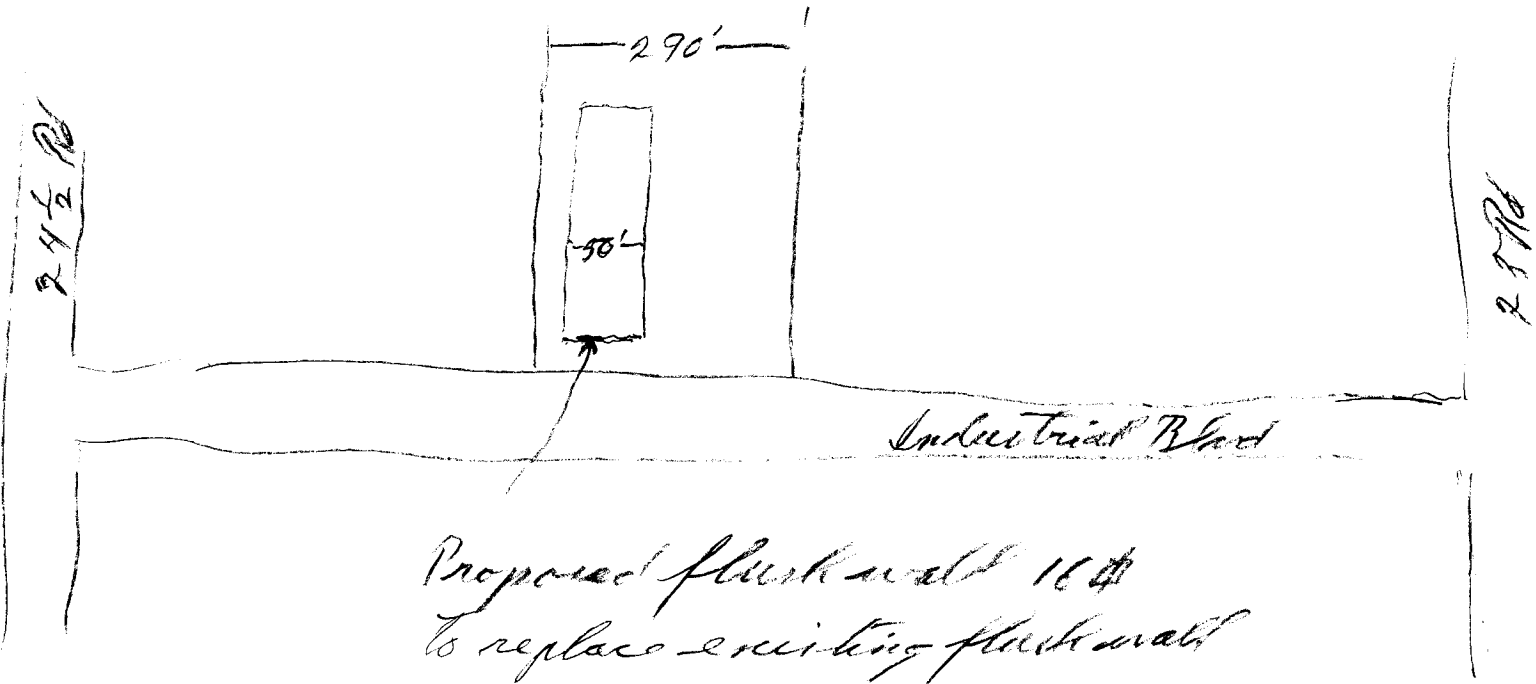 290'
24 1/2 Rd
50'
25 Rd
Industrial Blvd
Proposed flush wall 16 #
to replace existing flush wall